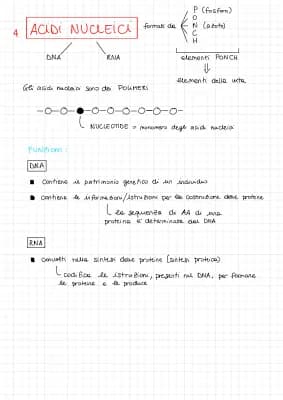 4
ACIDI NUCLEICI
formati da
P (fosforo)
O
N (azoto)
C
H
DNA
RNA
elementi PONCH
elementi della vita
Gli acidi nucleici sono dei POLIMERI
NUCLEOTIDE = monomero degli acidi nucleici
Funzioni:
DNA
Contiene il patrimonio genetico di un individuo
Contiene le informazioni/istruzioni per la costruzione delle proteine
la sequenza di AA di una
proteina è determinata dal DNA
RNA
Coinvolti nella sintesi delle proteine (sintesi proteica)
codifica le istruzioni, presenti nel DNA, per formare
le proteine e le produce